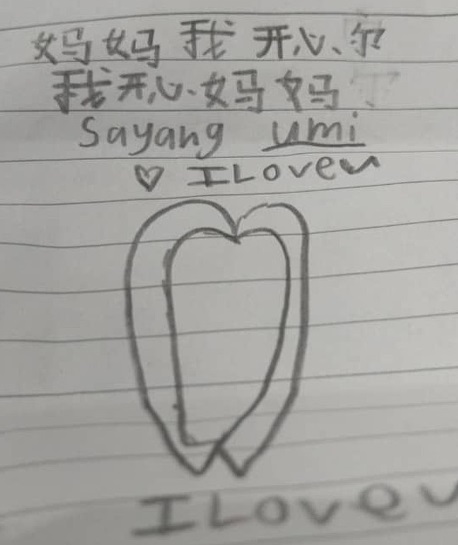 妈妈 我 开心、尔
我开心、妈妈
Sayang umi
♡ I Love u
I Love u